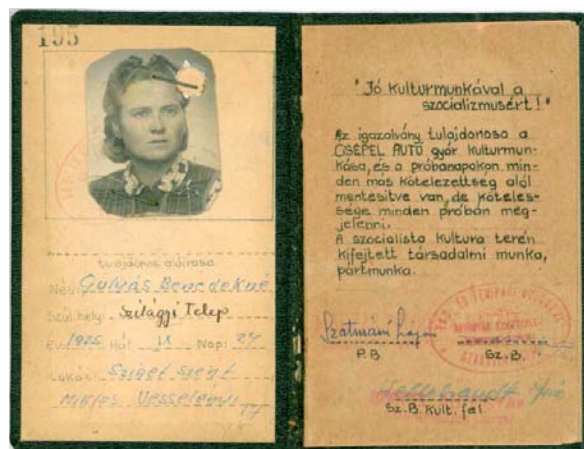 195
tulajdonos aláírása
Név: Gulyás Benedekné
Szül. hely: Szilágyi Telep
Év: 1925 Hó: IX Nap: 27
Lakás: Sziget szent
Miklós Vesselényi
"Jó kulturmunkával a
szocializmusért!"
Az igazolvány tulajdonosa a
CSEPEL AUTÓ gyár kulturmun-
kása, és a próbanapokon min-
den más kötelezettség alól
mentesitve van, de köteles-
sége minden próbán meg-
jelenni.
A szocialista kultura terén
kifejtett társadalmi munka,
pártmunka.
Szatmári Lajos
P.B.
Sz.B.
Sz.B. Kult. fel.